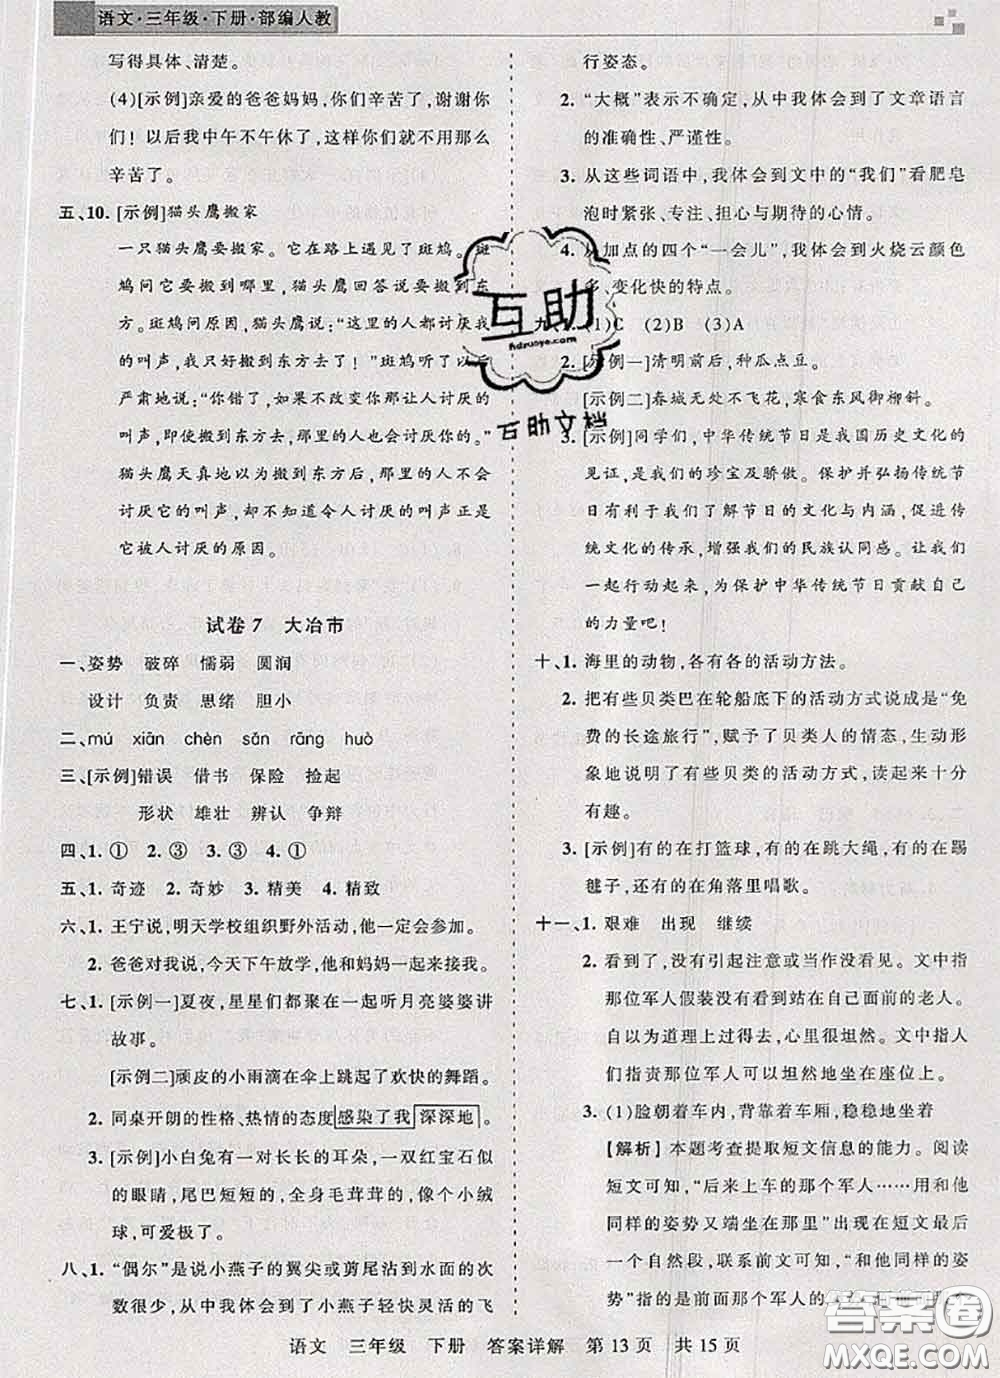 语文·三年级·下册·部编人教
写得具体、清楚。
(4)[示例]亲爱的爸爸妈妈,你们辛苦了,谢谢你
们!以后我中午不午休了,这样你们就不用那么
辛苦了。
五、10. [示例]猫头鹰搬家
一只猫头鹰要搬家。它在路上遇见了斑鸠。斑
鸠问它要搬到哪里,猫头鹰回答说要搬到东
方。斑鸠问原因,猫头鹰说:“这里的人都讨厌我
的叫声,我只好搬到东方去了!”斑鸠听了以后
严肃地说:“你错了,如果不改变你那让人讨厌
的叫声,即使搬到东方去,那里的人也会讨厌你的。”
猫头鹰天真地以为搬到东方后,那里的人不会
讨厌它的叫声,却不知道令人讨厌的叫声正是
它被人讨厌的原因。
试卷7 大冶市
一、姿势 破碎 懦弱 圆润
设计 负责 思绪 胆小
二、mú xiān chèn sǎn rāng huò
三、[示例]错误 借书 保险 捡起
形状 雄壮 辨认 争辩
四、1. ① 2. ③ 3. ③ 4. ①
五、1. 奇迹 2. 奇妙 3. 精美 4. 精致
六、1. 王宁说,明天学校组织野外活动,他一定会参加。
2. 爸爸对我说,今天下午放学,他和妈妈一起来接我。
七、1. [示例一]夏夜,星星们都聚在一起听月亮婆婆讲
故事。
[示例二]顽皮的小雨滴在伞上跳起了欢快的舞蹈。
2. 同桌开朗的性格、热情的态度感染了我深深地。
3. [示例]小白兔有一对长长的耳朵,一双红宝石似
的眼睛,尾巴短短的,全身毛茸茸的,像个小绒
球,可爱极了。
八、1. “偶尔”是说小燕子的翼尖或剪尾沾到水面的次
数很少,从中我体会到了小燕子轻快灵活的飞
行姿态。
2. “大概”表示不确定,从中我体会到了文章语言
的准确性、严谨性。
3. 从这些词语中,我体会到文中的“我们”看肥皂
泡时紧张、专注、担心与期待的心情。
4. 从加点的四个“一会儿”,我体会到火烧云颜色
多、变化快的特点。
九、1. (1)C (2)B (3)A
2. [示例一]清明前后,种瓜点豆。
[示例二]春城无处不飞花,寒食东风御柳斜。
3. [示例]同学们,中华传统节日是我国历史文化的
见证,是我们的珍宝及骄傲。保护并弘扬传统节
日有利于我们了解节日的文化与内涵,促进传
统文化的传承,增强我们的民族认同感。让我们
一起行动起来,为保护中华传统节日贡献自己
的力量吧!
十、1. 海里的动物,各有各的活动方法。
2. 把有些贝类巴在轮船底下的活动方式说成是“免
费的长途旅行”,赋予了贝类人的情态,生动形
象地说明了有些贝类的活动方式,读起来十分
有趣。
3. [示例]有的在打篮球,有的在跳大绳,有的在踢
毽子,还有的在角落里唱歌。
十一、1. 艰难 出现 继续
2. 看到了,没有引起注意或当作没看见。文中指
那位军人假装没有看到站在自己面前的老人。
自以为道理上过得去,心里很坦然。文中指人
们指责那位军人可以坦然地坐在座位上。
3. (1)脸朝着车内,背靠着车厢,稳稳地坐着
【解析】本题考查提取短文信息的能力。阅读
短文可知,“后来上车的那个军人……用和他
同样的姿势又端坐在那里”出现在短文最后
一个自然段,联系前文可知,“和他同样的姿
势”指的是
语文 三年级 下册 答案详解 第13页 共15页
互助
hdzuoye.com
互助文档
答案圈
MXQE.COM